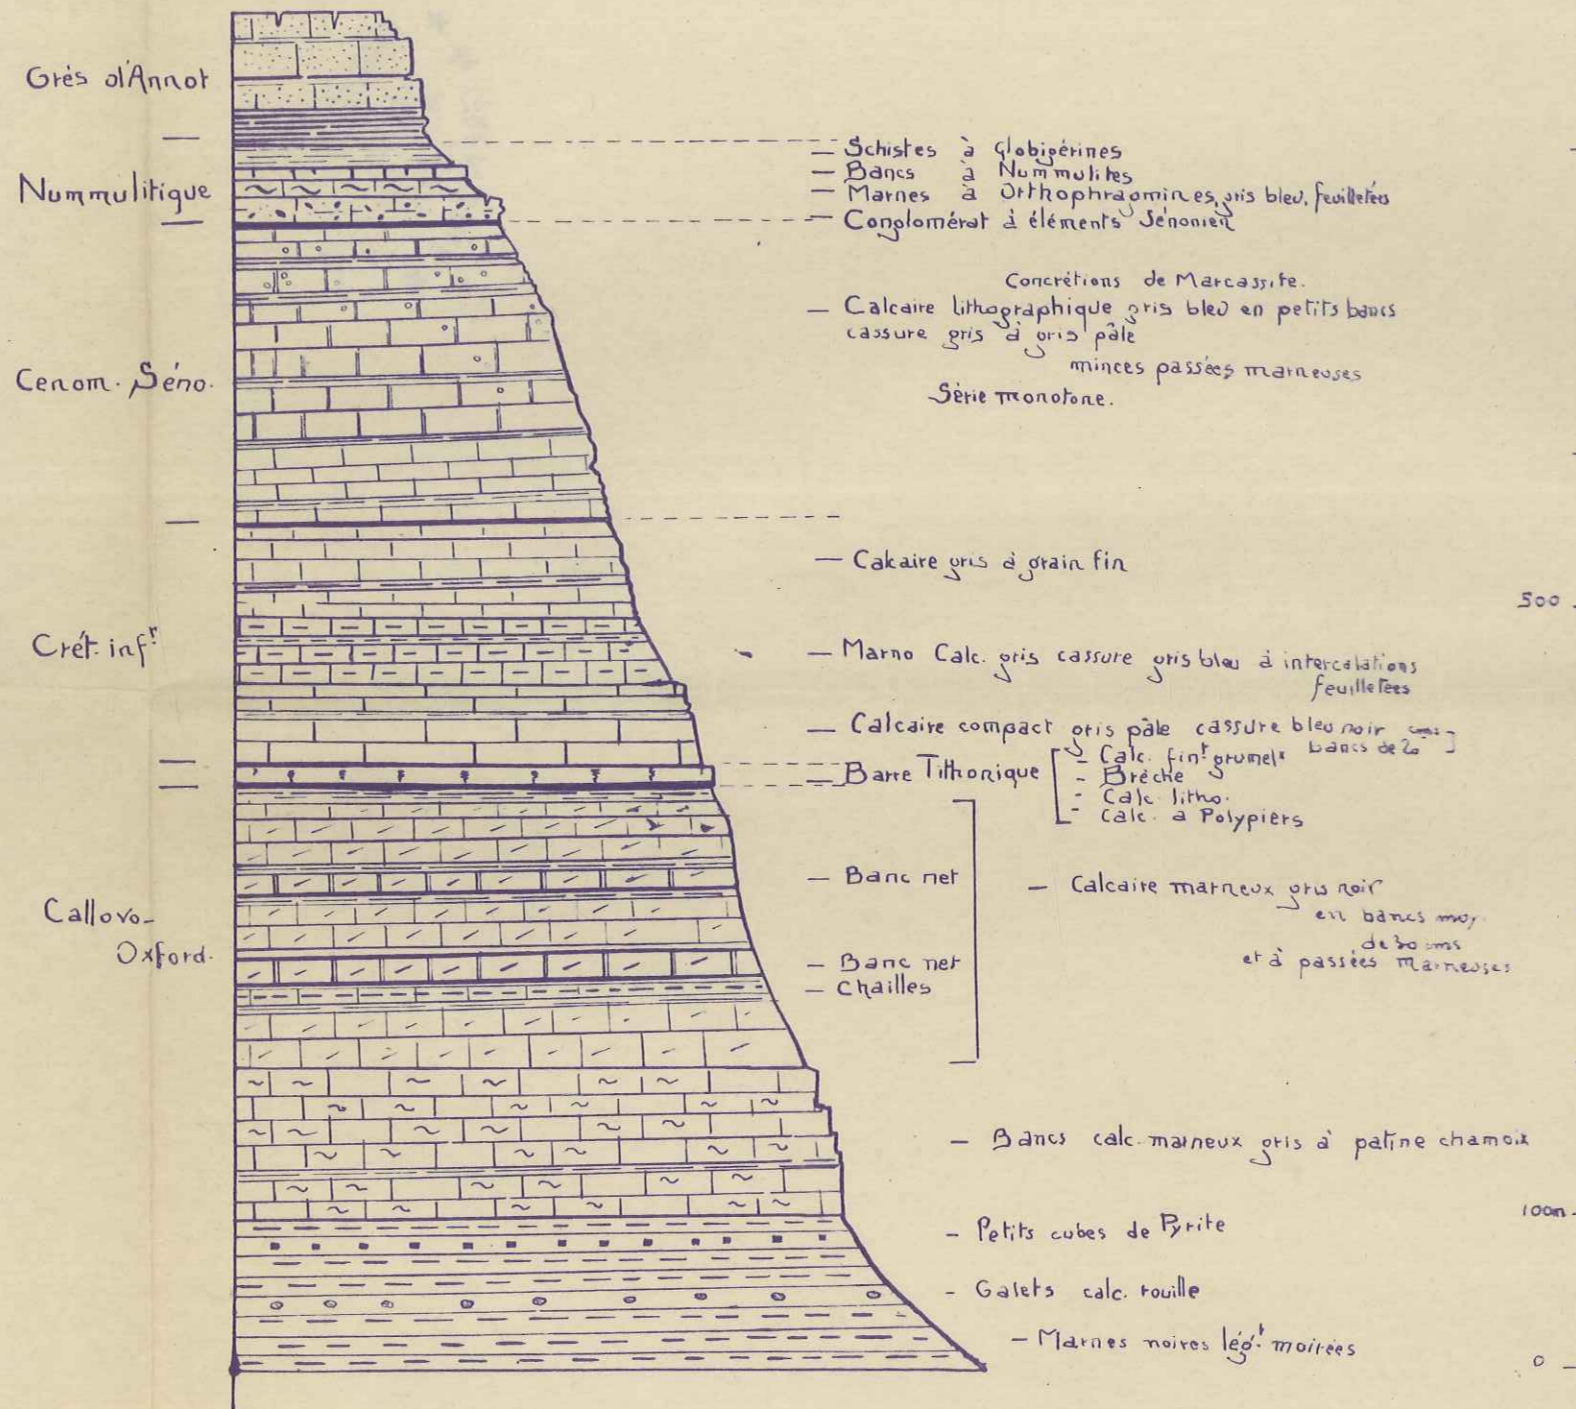 Grès d'Annot
Nummulitique
Cenom. Séno.
Crét. inf.r
Callovo-
Oxford.
— Schistes à Globigérines
— Bancs à Nummulites
— Marnes à Orthophragmines, gris bleu, feuilletées
— Conglomérat à éléments Sénonien
Concrétions de Marcassite.
— Calcaire lithographique gris bleu en petits bancs
cassure gris à gris pâle
minces passées marneuses
Série monotone.
— Calcaire gris à grain fin
500
— Marno Calc. gris cassure gris bleu à intercalations
feuilletées
— Calcaire compact gris pâle cassure bleu noir
bancs de
— Barre Tithonique
- Calc. fin.t grumel.x
- Brèche
- Calc. litho.
- Calc. a Polypiers
— Banc net
— Calcaire marneux gris noir
en bancs moy.
de 30 cms
et à passées marneuses
— Banc net
— Chailles
— Bancs calc. marneux gris à patine chamoix
100m
— Petits cubes de Pyrite
— Galets calc. rouille
— Marnes noires lég.t moirées
0